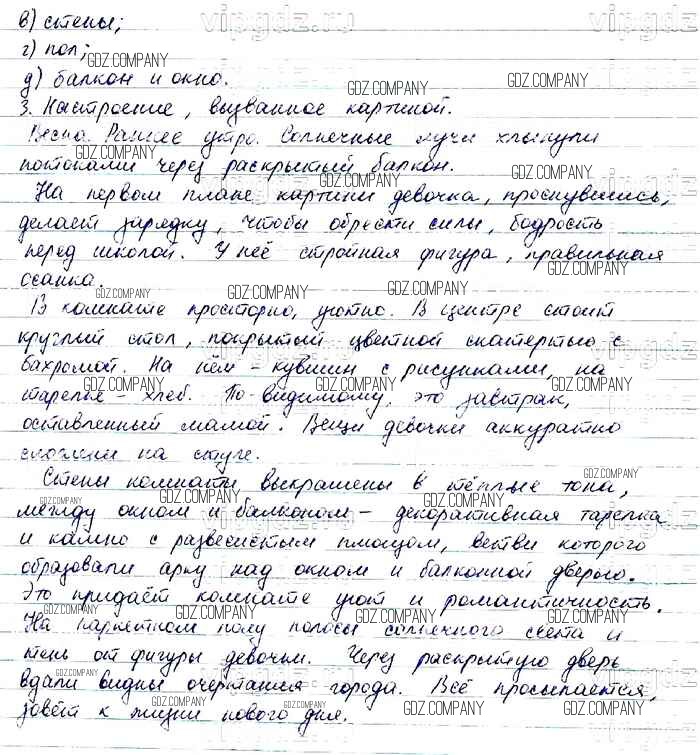 в) стены;
г) пол;
д) балкон и окно.
3. Настроение, вызванное картиной.
Весна. Раннее утро. Солнечные лучи хлынули
потоками через раскрытый балкон.
На первом плане картины девочка, проснувшись,
делает зарядку, чтобы обрести силы, бодрость
перед школой. У неё стройная фигура, правильная
осанка.
В комнате просторно, уютно. В центре стоит
круглый стол, покрытый цветной скатертью с
бахромой. На нём – кувшин с рисунками, на
тарелке – хлеб. По-видимому, это завтрак,
оставленный мамой. Вещи девочки аккуратно
сложены на стуле.
Стены комнаты выкрашены в тёплые тона,
между окном и балконом – декоративная тарелка
и кашпо с развесистым плющом, ветви которого
образовали арку над окном и балконной дверью.
Это придаёт комнате уют и романтичность.
На паркетном полу полосы солнечного света и
тень от фигуры девочки. Через раскрытую дверь
вдали видны очертания города. Всё просыпается,
зовёт к жизни нового дня.